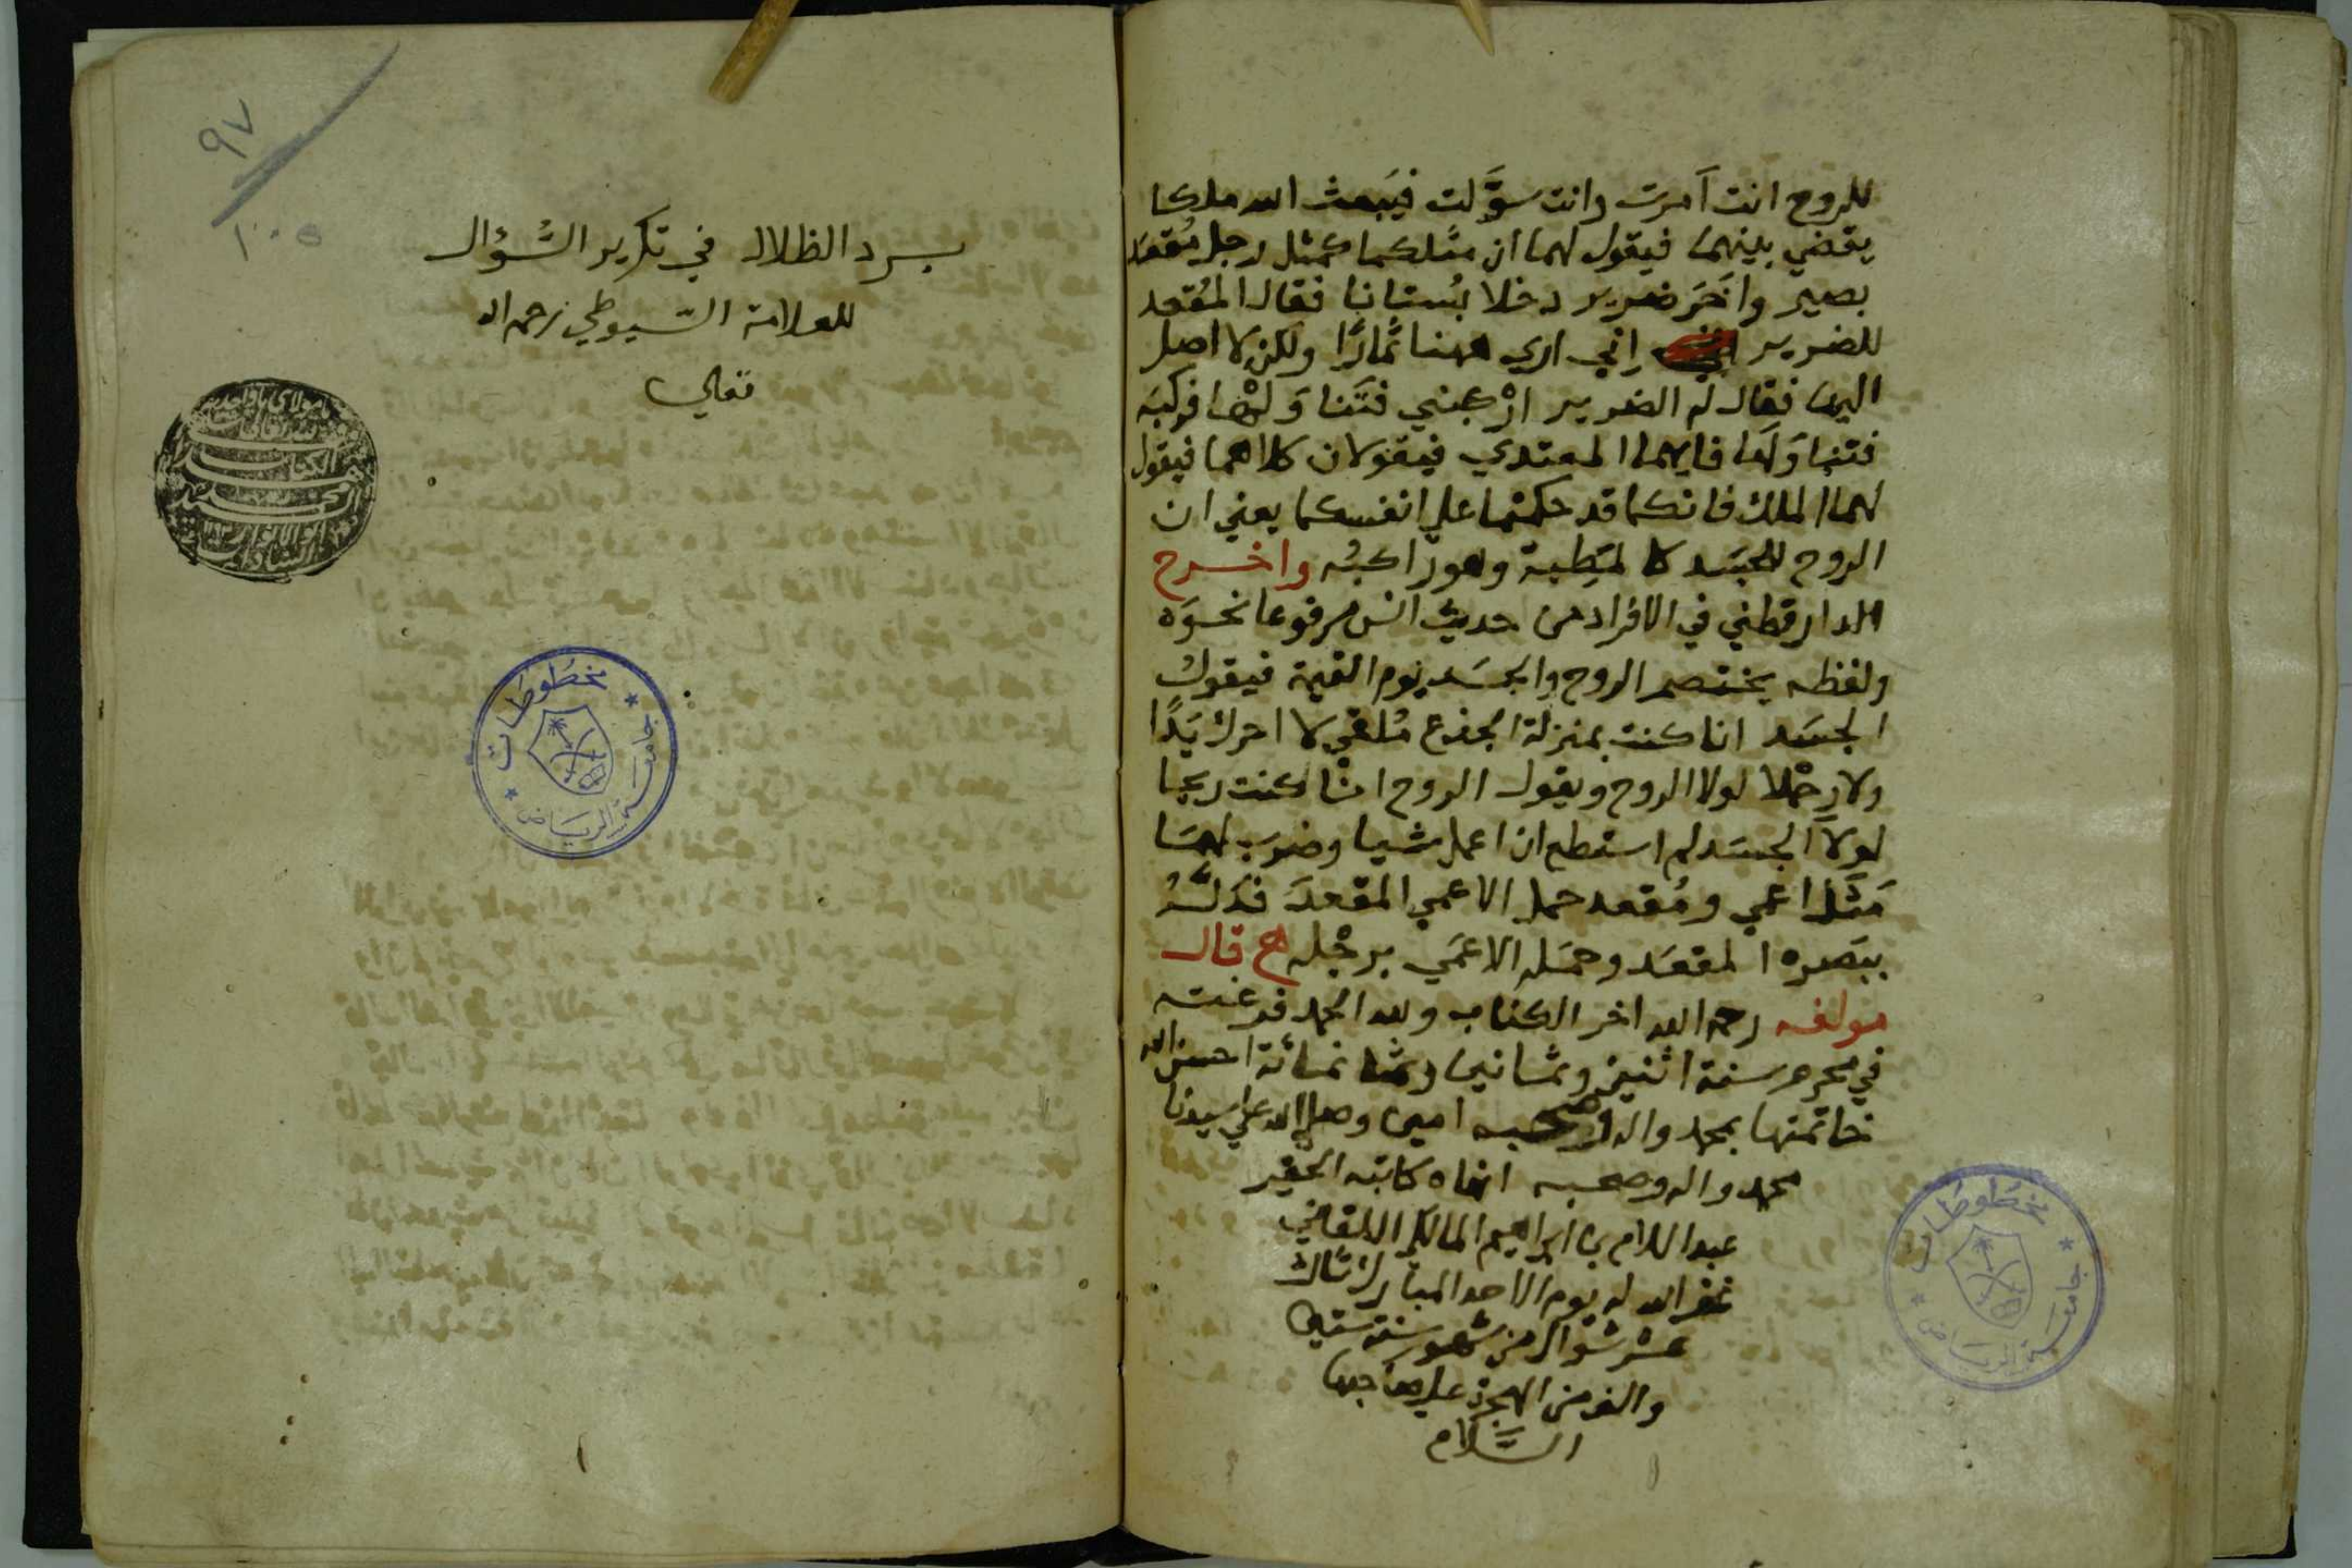 للروح انت آمرت وانت سوَّلت فيَبعث الله ملكا
يقضي بينهما فيقول لهما ان مثلكما كمثل رجل مُقعَد
بصير واٰخَر ضرير دخلا بُستانا فقال المُقعد
للضرير اِني اري ههنا ثمارًا ولكن لا اصل
اليها فقال له الضرير ارْكبني فتَنَاوَلْها فركبَه
فتناوَلَها فايهما المعتدي فيقولان كلاهما فيقول
لهما الملك فانكما قد حكمتما علي انفسكما يعني ان
الروح للجسَد كالمَطِية وهو راكبُه واخرج
الدارقطني في الافراد من حديث انس مرفوعا نحوَه
ولفظه يختصم الروح والجسَد يوم القيمة فيقول
الجسَد انا كنت بمنزلة الجذع مُلقي لا احرك يَدًا
ولا رِجْلا لولا الروح ويقول الروح انا كنت ريحا
لولا الجسَد لم استطع ان اعمل شيا وضرب لهما
مَثَل اعمي ومُقعد حمل الاعمي المقعدَ فدَلَّهُ
ببَصره المقعَد وحمَله الاعمَي برجْله ح قال
مولفه رحمه الله اخر الكتاب ولله الحمد فرغت
في محرم سنة اثنين وثمانين وثمانمائة احسن الله
خاتمتها بمحمد واله وصحبه امين وصلي الله علي سيدنا
محمد واله وصحبه انهاه كاتبه الحقير
عبد السلام بن ابراهيم المالكي اللقاني
غفر الله له يوم الاحد المبارك ثالث
عشر شوال من شهور سنة ستين
والف من الهجرة علي صاحبها
السَّلام
مخطوطات
جامعة الرياض
٩٧
١٠٥
برد الظلال في تكرير السُّؤال
للعلامة السّيوطي رحمه الله
تعالي
مخطوطات
جامعة الرياض